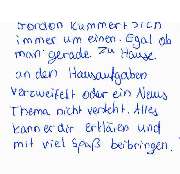 Jordan kümmert sich
immer um einen. Egal ob
man gerade zu Hause
an den Hausaufgaben
verzweifelt oder ein Neues
Thema nicht versteht. Alles
kann er dir erklären und
mit viel Spaß beibringen.